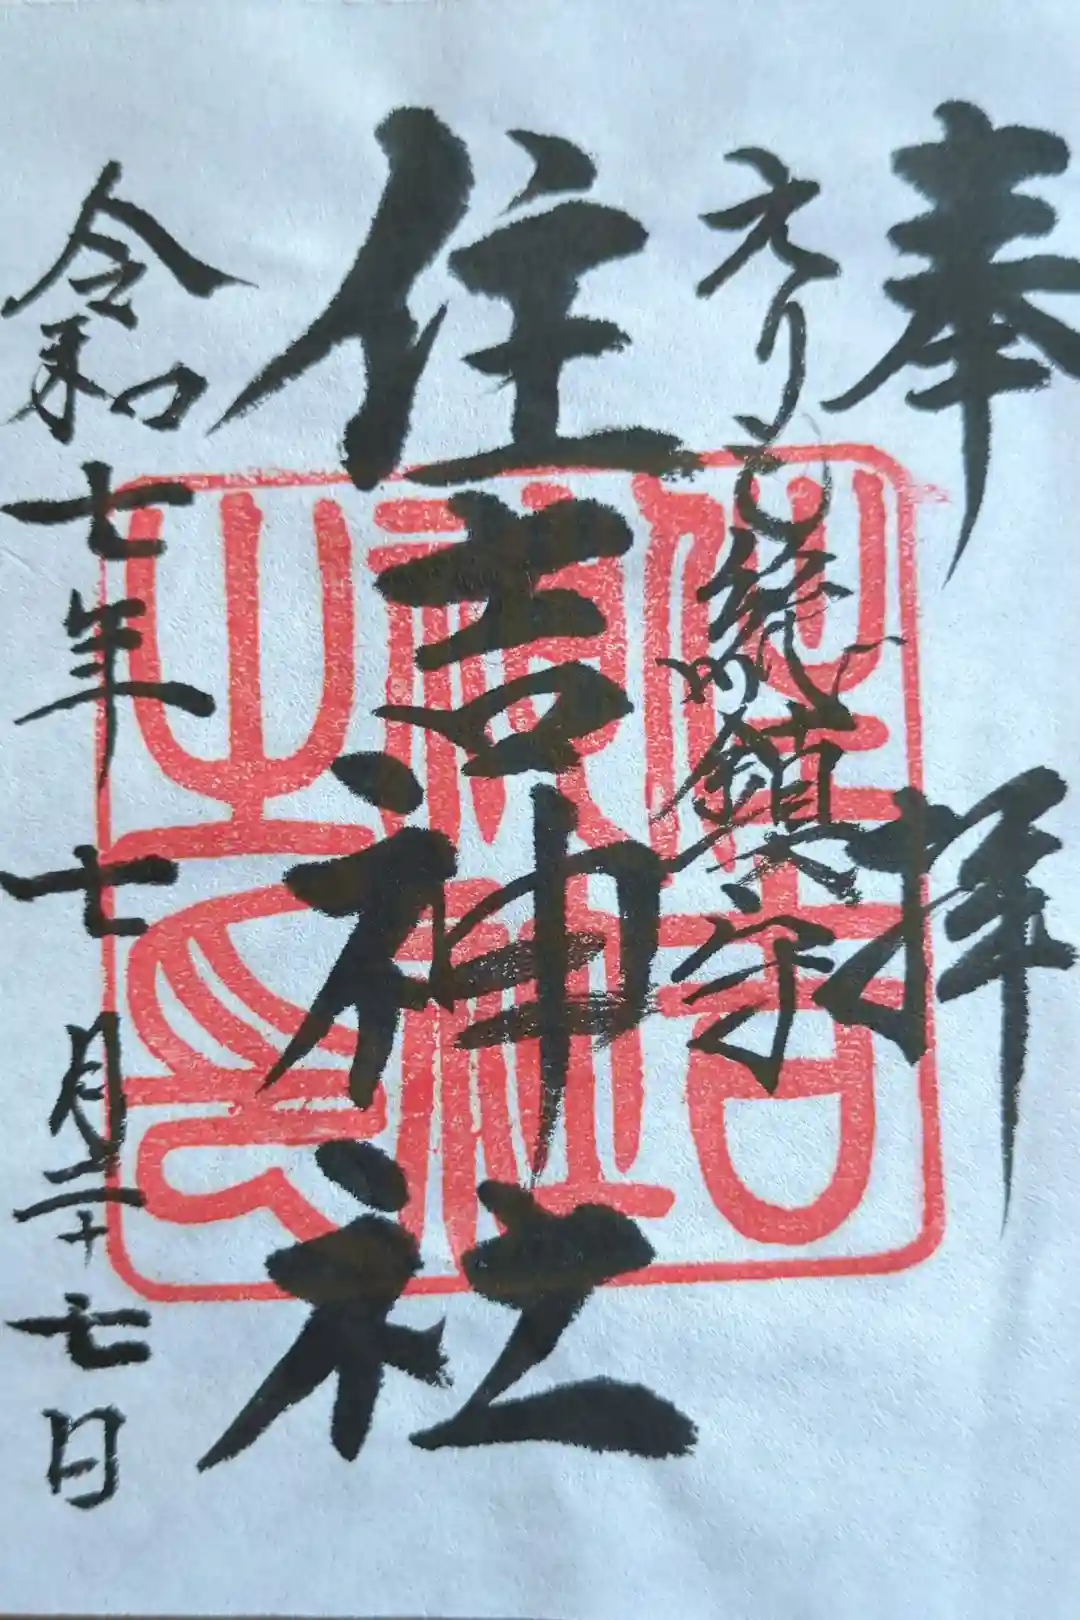 奉拝
えりも総鎮守
住吉神社
令和七年七月二十七日
住吉
神社
之印